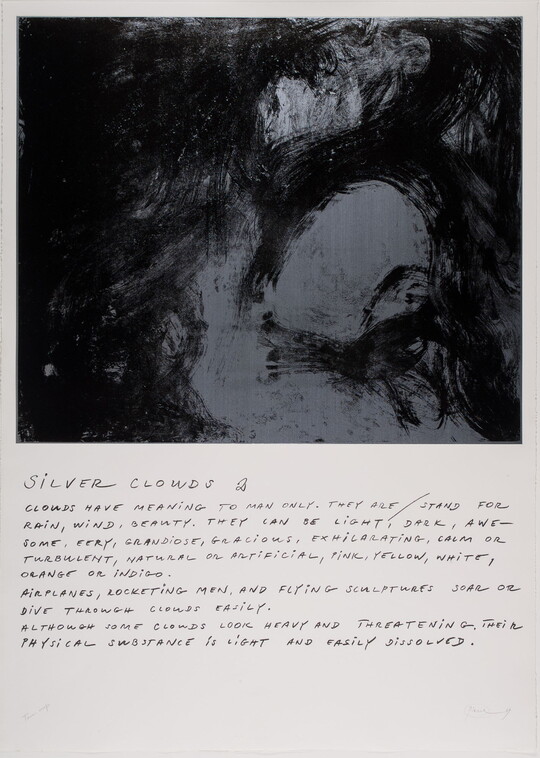 SILVER CLOUDS 2
CLOUDS HAVE MEANING TO MAN ONLY. THEY ARE / STAND FOR
RAIN, WIND, BEAUTY. THEY CAN BE LIGHT, DARK, AWE-
SOME, EERY, GRANDIOSE, GRACIOUS, EXHILARATING, CALM OR
TURBULENT, NATURAL OR ARTIFICIAL, PINK, YELLOW, WHITE,
ORANGE OR INDIGO.
AIRPLANES, ROCKETING MEN, AND FLYING SCULPTURES SOAR OR
DIVE THROUGH CLOUDS EASILY.
ALTHOUGH SOME CLOUDS LOOK HEAVY AND THREATENING, THEIR
PHYSICAL SUBSTANCE IS LIGHT AND EASILY DISSOLVED.